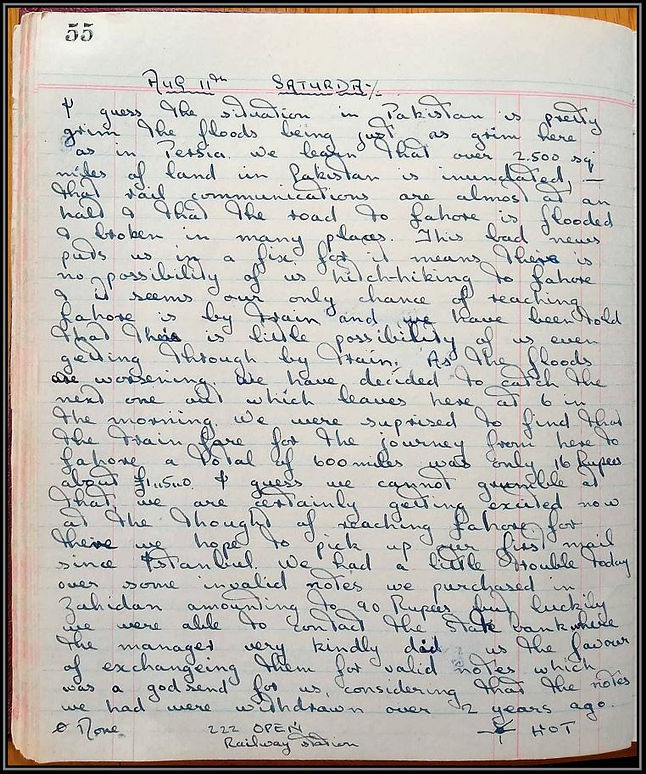 55
AUG 11th SATURDAY
I guess the situation in Pakistan is pretty
grim the floods being just as grim here
as in Persia. We learn that over 2,500 sq
miles of land in Pakistan is inundated, —
that rail communications are almost at an
halt & that the road to Lahore is flooded
& broken in many places. This bad news
puts us in a fix for it means there is
no possibility of us hitchhiking to Lahore
& it seems our only chance of reaching
Lahore is by train and we have been told
that there is little possibility of us even
getting through by train. As the floods
are worsening we have decided to catch the
next one out which leaves here at 6 in
the morning. We were suprised to find that
the train fare for the journey from here to
Lahore a total of 600 miles was only 16 Rupees
about £1.5.0. I guess we cannot grumble at
that, we are certainly getting excited now
at the thought of reaching Lahore for
there we hope to pick up our first mail
since Istanbul. We had a little trouble today
over some invalid notes we purchased in
Zahidan amounting to 90 Rupees but luckily
we were able to contact the State bank where
the manager very kindly did us the favour
of exchangeing them for valid notes which
was a godsend for us, considering that the notes
we had were withdrawn over 2 years ago.
None 222 OPEN HOT
Railway station